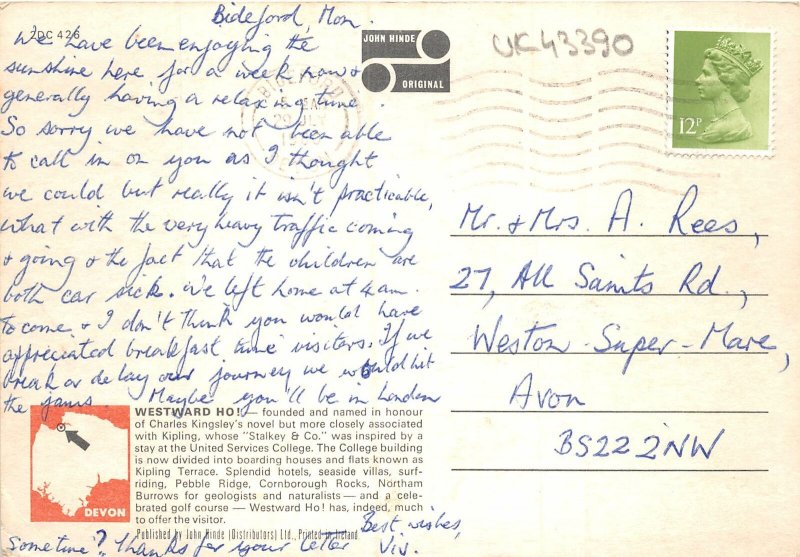 Bideford, Mon.
2DC 426
We have been enjoying the
sunshine here for a week now &
generally having a relaxing time.
So sorry we have not been able
to call in on you as I thought
we could but really it isn't practicable,
what with the very heavy traffic coming
& going & the fact that the children are
both car sick. We left home at 4am.
to come & I don't think you would have
appreciated breakfast time visitors. If we
break or delay our journey we would hit
the jams Maybe you'll be in London
JOHN HINDE
ORIGINAL
UK43390
12P
Mr. & Mrs. A. Rees,
27, All Saints Rd.,
Weston-Super-Mare,
Avon
BS22 2NW
DEVON
WESTWARD HO! — founded and named in honour
of Charles Kingsley's novel but more closely associated
with Kipling, whose "Stalkey & Co." was inspired by a
stay at the United Services College. The College building
is now divided into boarding houses and flats known as
Kipling Terrace. Splendid hotels, seaside villas, surf-
riding, Pebble Ridge, Cornborough Rocks, Northam
Burrows for geologists and naturalists — and a cele-
brated golf course — Westward Ho! has, indeed, much
to offer the visitor.
Published by John Hinde (Distributors) Ltd., Printed in Ireland
Sometime? Thanks for your letter
Best wishes,
Viv.